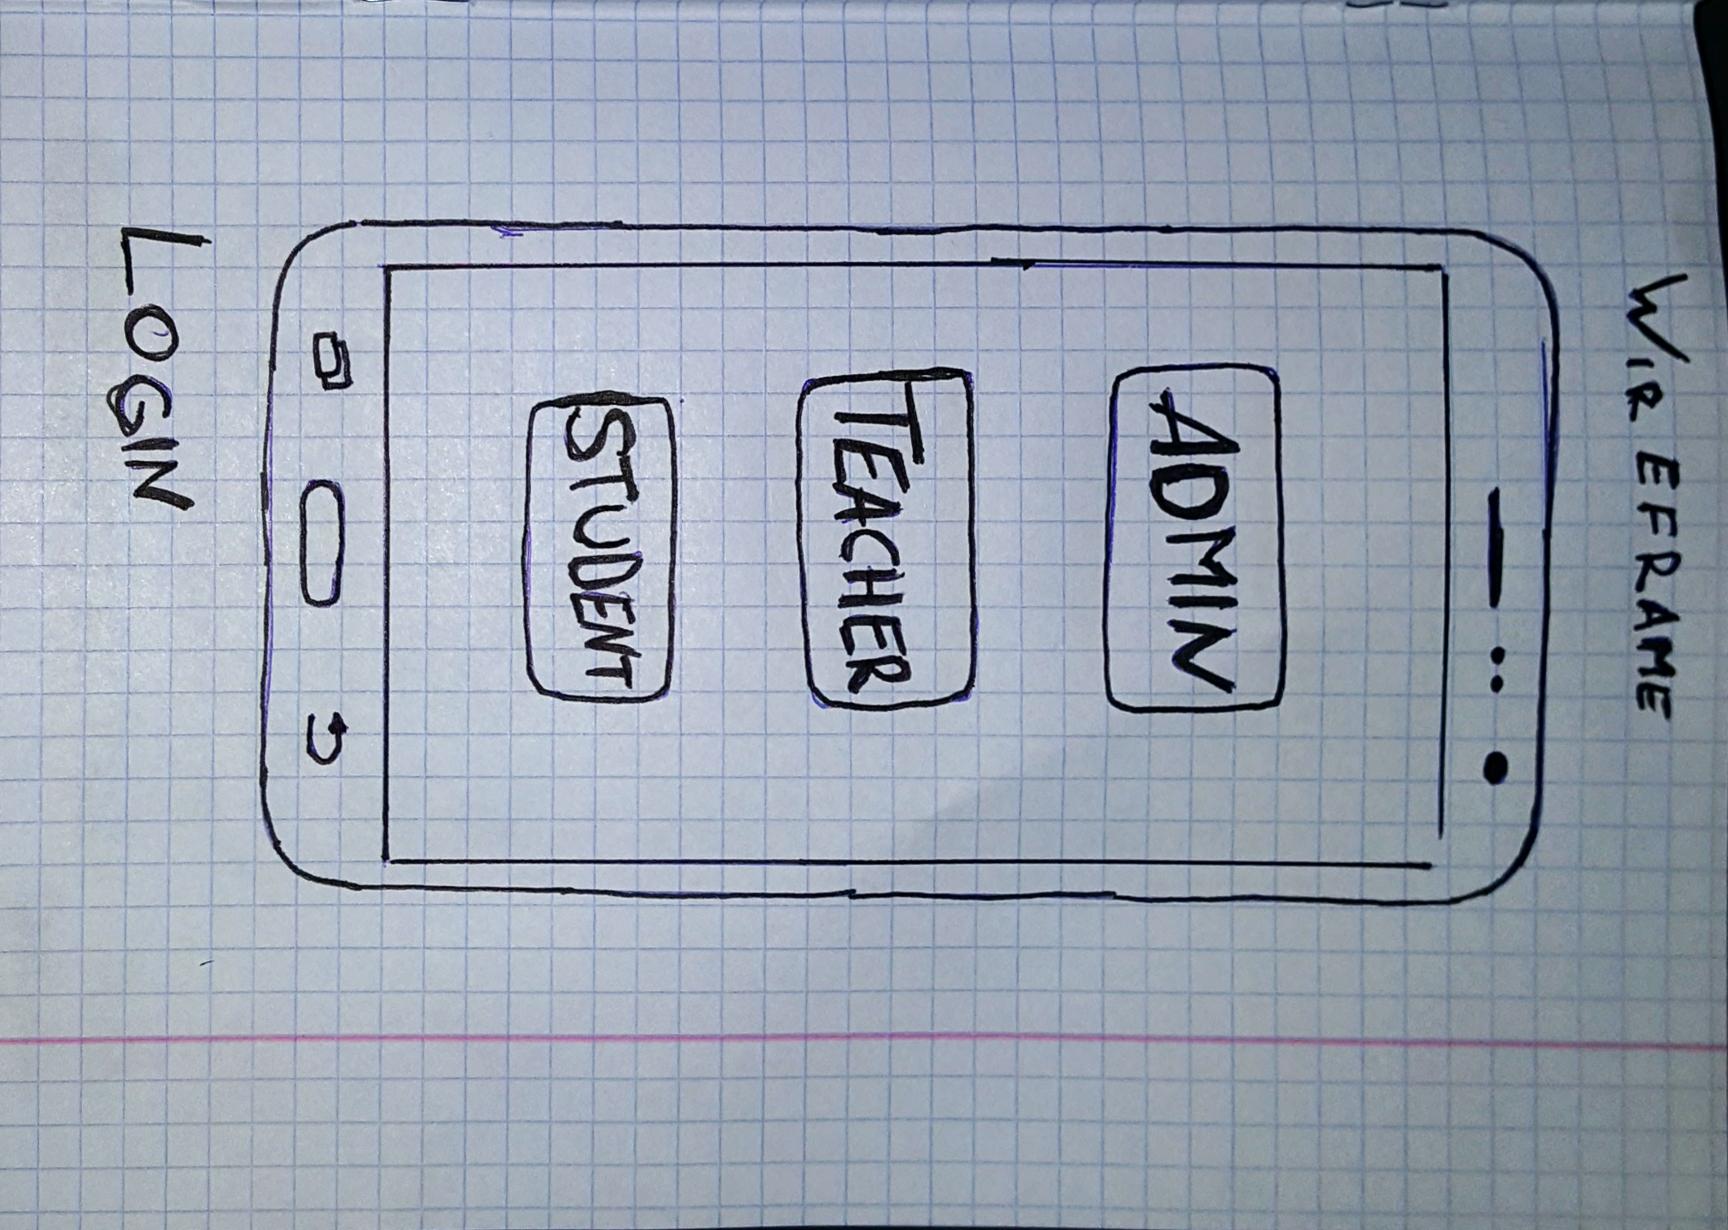 WIREFRAME
ADMIN
TEACHER
STUDENT
LOGIN